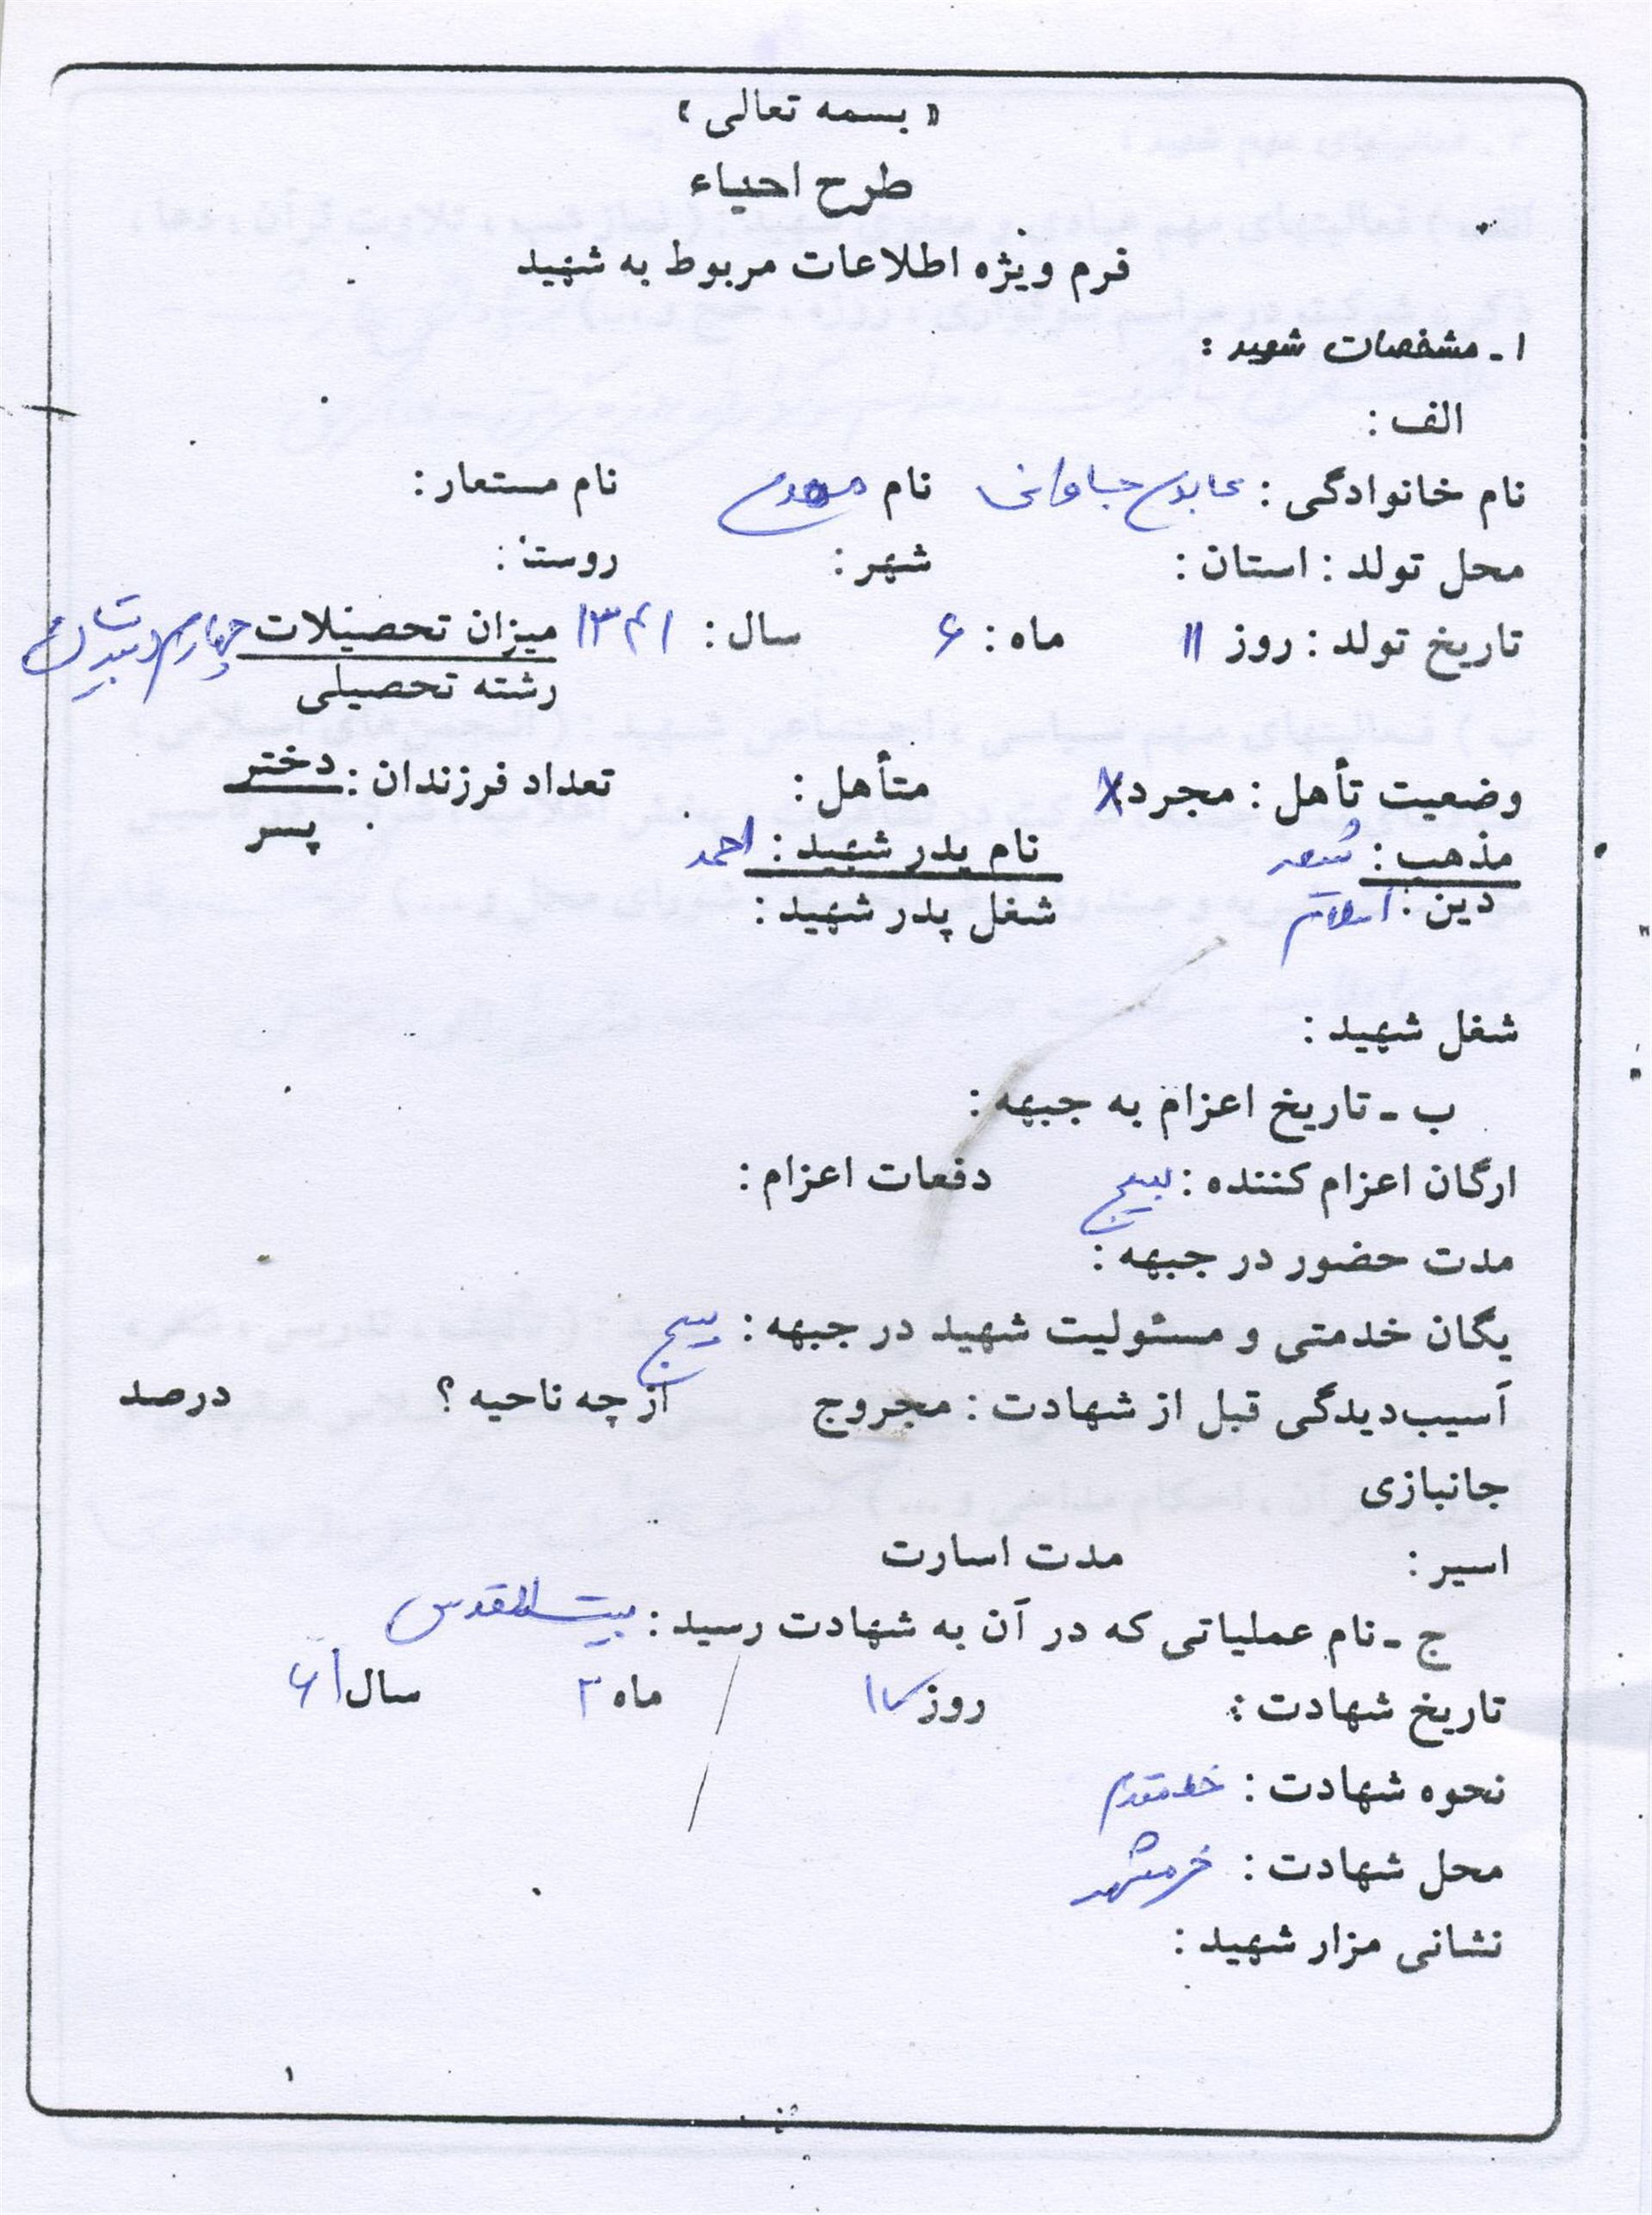 « بسمه تعالی »
طرح احیاء
فرم ویژه اطلاعات مربوط به شهید
۱ ـ مشخصات شهید :
الف :
نام خانوادگی : عابدی جباوانی نام مهدی نام مستعار :
محل تولد : استان : شهر : روستا :
تاریخ تولد : روز ۱۱ ماه : ۶ سال : ۱۳۴۱ میزان تحصیلات چهارم دبیرستان
رشته تحصیلی
وضعیت تأهل : مجرد X متأهل : تعداد فرزندان : دختر
پسر
مذهب : شیعه نام پدر شهید : احمد
دین : اسلام شغل پدر شهید :
شغل شهید :
ب ـ تاریخ اعزام به جبهه :
ارگان اعزام کننده : بسیج دفعات اعزام :
مدت حضور در جبهه :
یگان خدمتی و مسئولیت شهید در جبهه : بسیج
آسیب‌دیدگی قبل از شهادت : مجروح از چه ناحیه ؟ درصد
جانبازی
اسیر : مدت اسارت
ج ـ نام عملیاتی که در آن به شهادت رسید : بیت المقدس
تاریخ شهادت : روز ماه ۲ سال ۶۱
نحوه شهادت : خط مقدم
محل شهادت : خرمشهر
نشانی مزار شهید :
۱